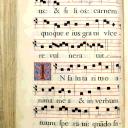 nc: & fi li os: carnem
quoque e ius gra ui vlce
re vul nera uit.
IN sa lu ta ri tuo a
nima me a: & in verbum
tuum spe ra ui: quádo fa